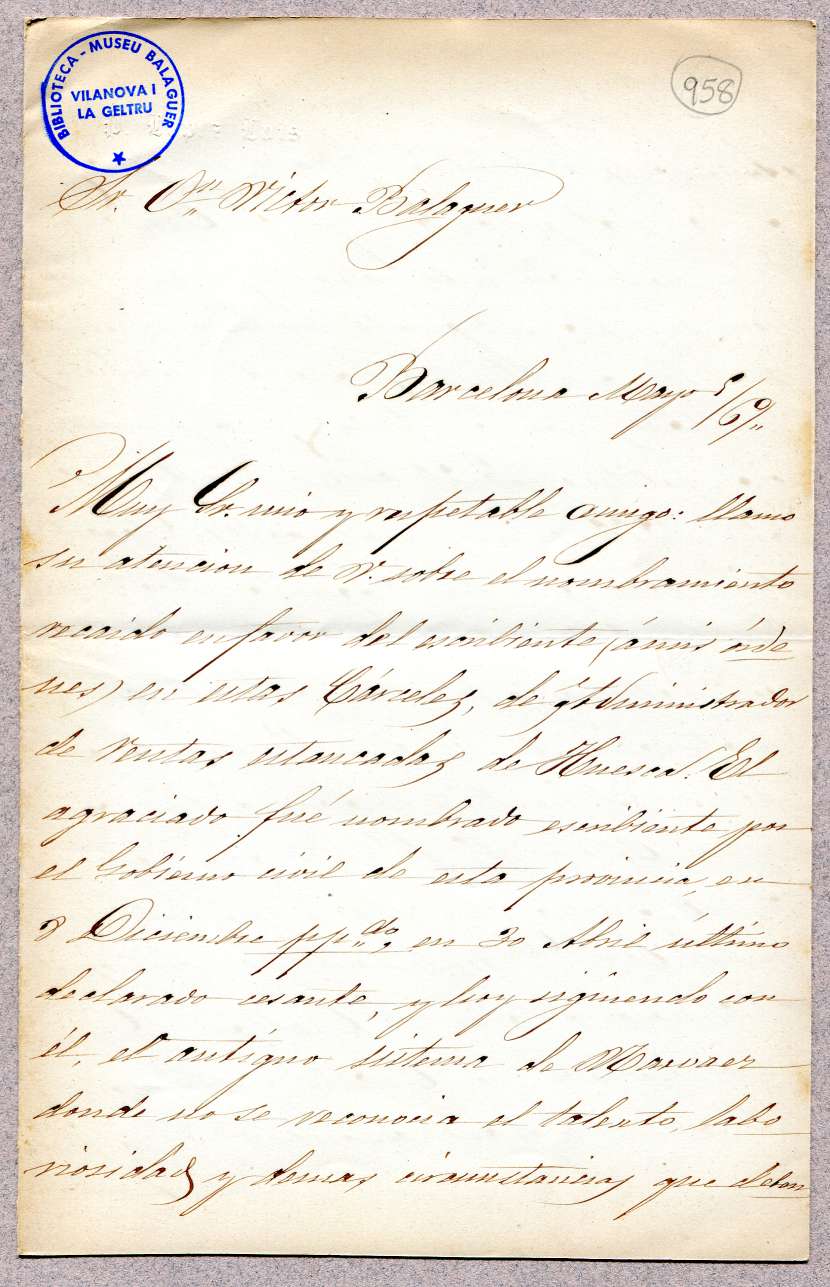 BIBLIOTECA - MUSEU BALAGUER
VILANOVA I
LA GELTRU
958
Sr. Dn Víctor Balaguer
Barcelona Mayo 5/69,,
Muy Sr. mio y respetable amigo: llamo
su atencion de V. sobre el nombramiento
recaido en favor del escribiente (á mis órde
nes) en estas Cárceles, de Administrador
de rentas estancadas de Huesca. El
agraciado fué nombrado escribiente por
el Gobierno civil de esta provincia, en
8 Diciembre pp.do, en 30 Abril último
declarado cesante, y hoy siguiendo con
él, el antíguo sistema de Narvaez
donde no se reconocia el talento, labo
riosidad y demas circunstancias que deben